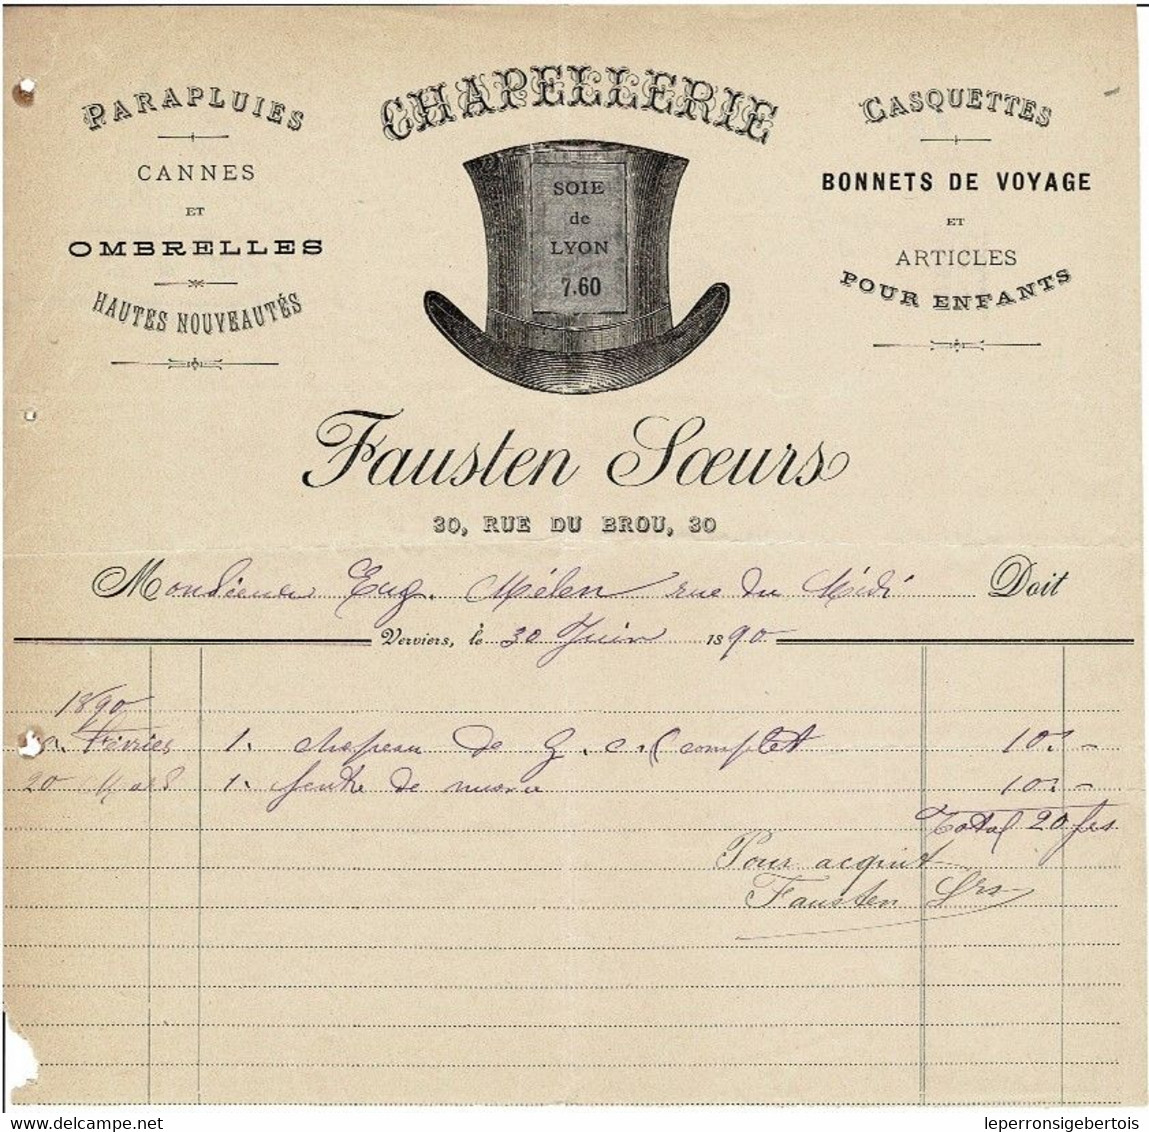 PARAPLUIES
CANNES
ET
OMBRELLES
HAUTES NOUVEAUTÉS
CHAPELLERIE
SOIE
de
LYON
7.60
CASQUETTES
BONNETS DE VOYAGE
ET
ARTICLES
POUR ENFANTS
Fausten Sœurs
30, RUE DU BROU, 30
Monsieur Eug. Mélen rue du Midi Doit
Verviers, le 30 Juin 1890
1890
Février 1. chapeau de g. c. complet 10. -
20 Mars 1. feutre de 10. -
Total 20 frs
Pour acquit
Fausten Srs
delcampe.net
leperronsigebertois